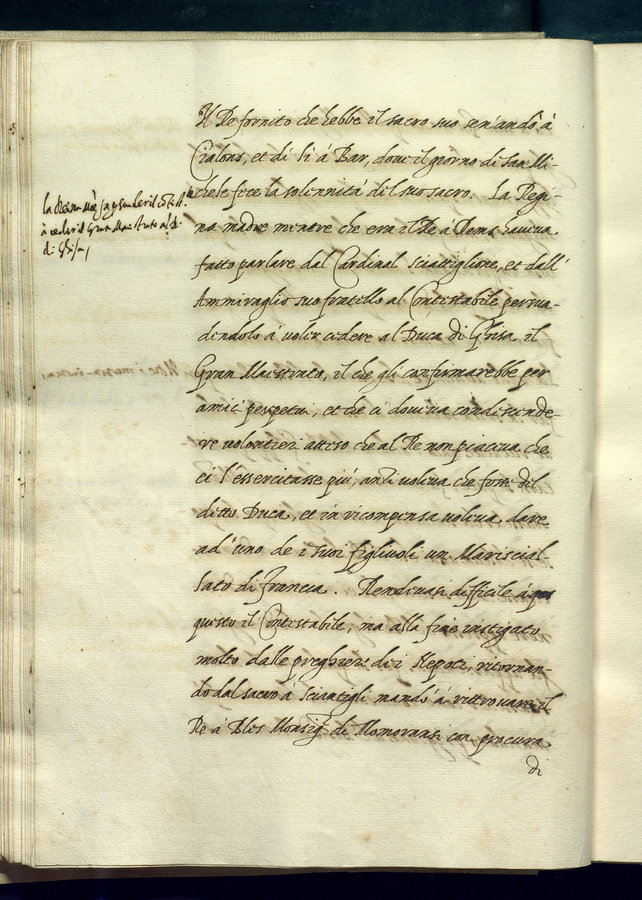 Il Re fornito che hebbe il sacro suo sen'andò à
Cialons, et di lì à Bar, doue il giorno di San Mi-
chele fece la solennità del suo sacro. La Regi-
na madre mentre che era il Rè à Rems haueua
fatto parlare dal Cardinal Sciattiglione, et dall'
Ammiraglio suo fratello al Contestabile persua-
dendolo à uoler cedere al Duca di Ghisa il
Gran Maestrato, il che gli confirmarebbe per
amici perpetui, et che ci doueua condiscende-
re uolontieri atteso che al Re non piaceua che
ei l'essercitasse più, anzi uoleua che fosse del
ditto Duca, et in ricompensa uoleua dare
ad uno de i suoi figliuoli un Mariscial-
lato di francia. Rendeuasi difficile à
questo il Contestabile, ma alla fine instigato
molto dalle preghiere de i Nepoti, ritornan-
do dal sacro à Sciantigli mandò à ritrouare il
Re à Bles Monsig.r di Momoransi con procura
di
la Reina persuader il Contest.
à ceder il Gran Maestrato al D.
di Ghisa